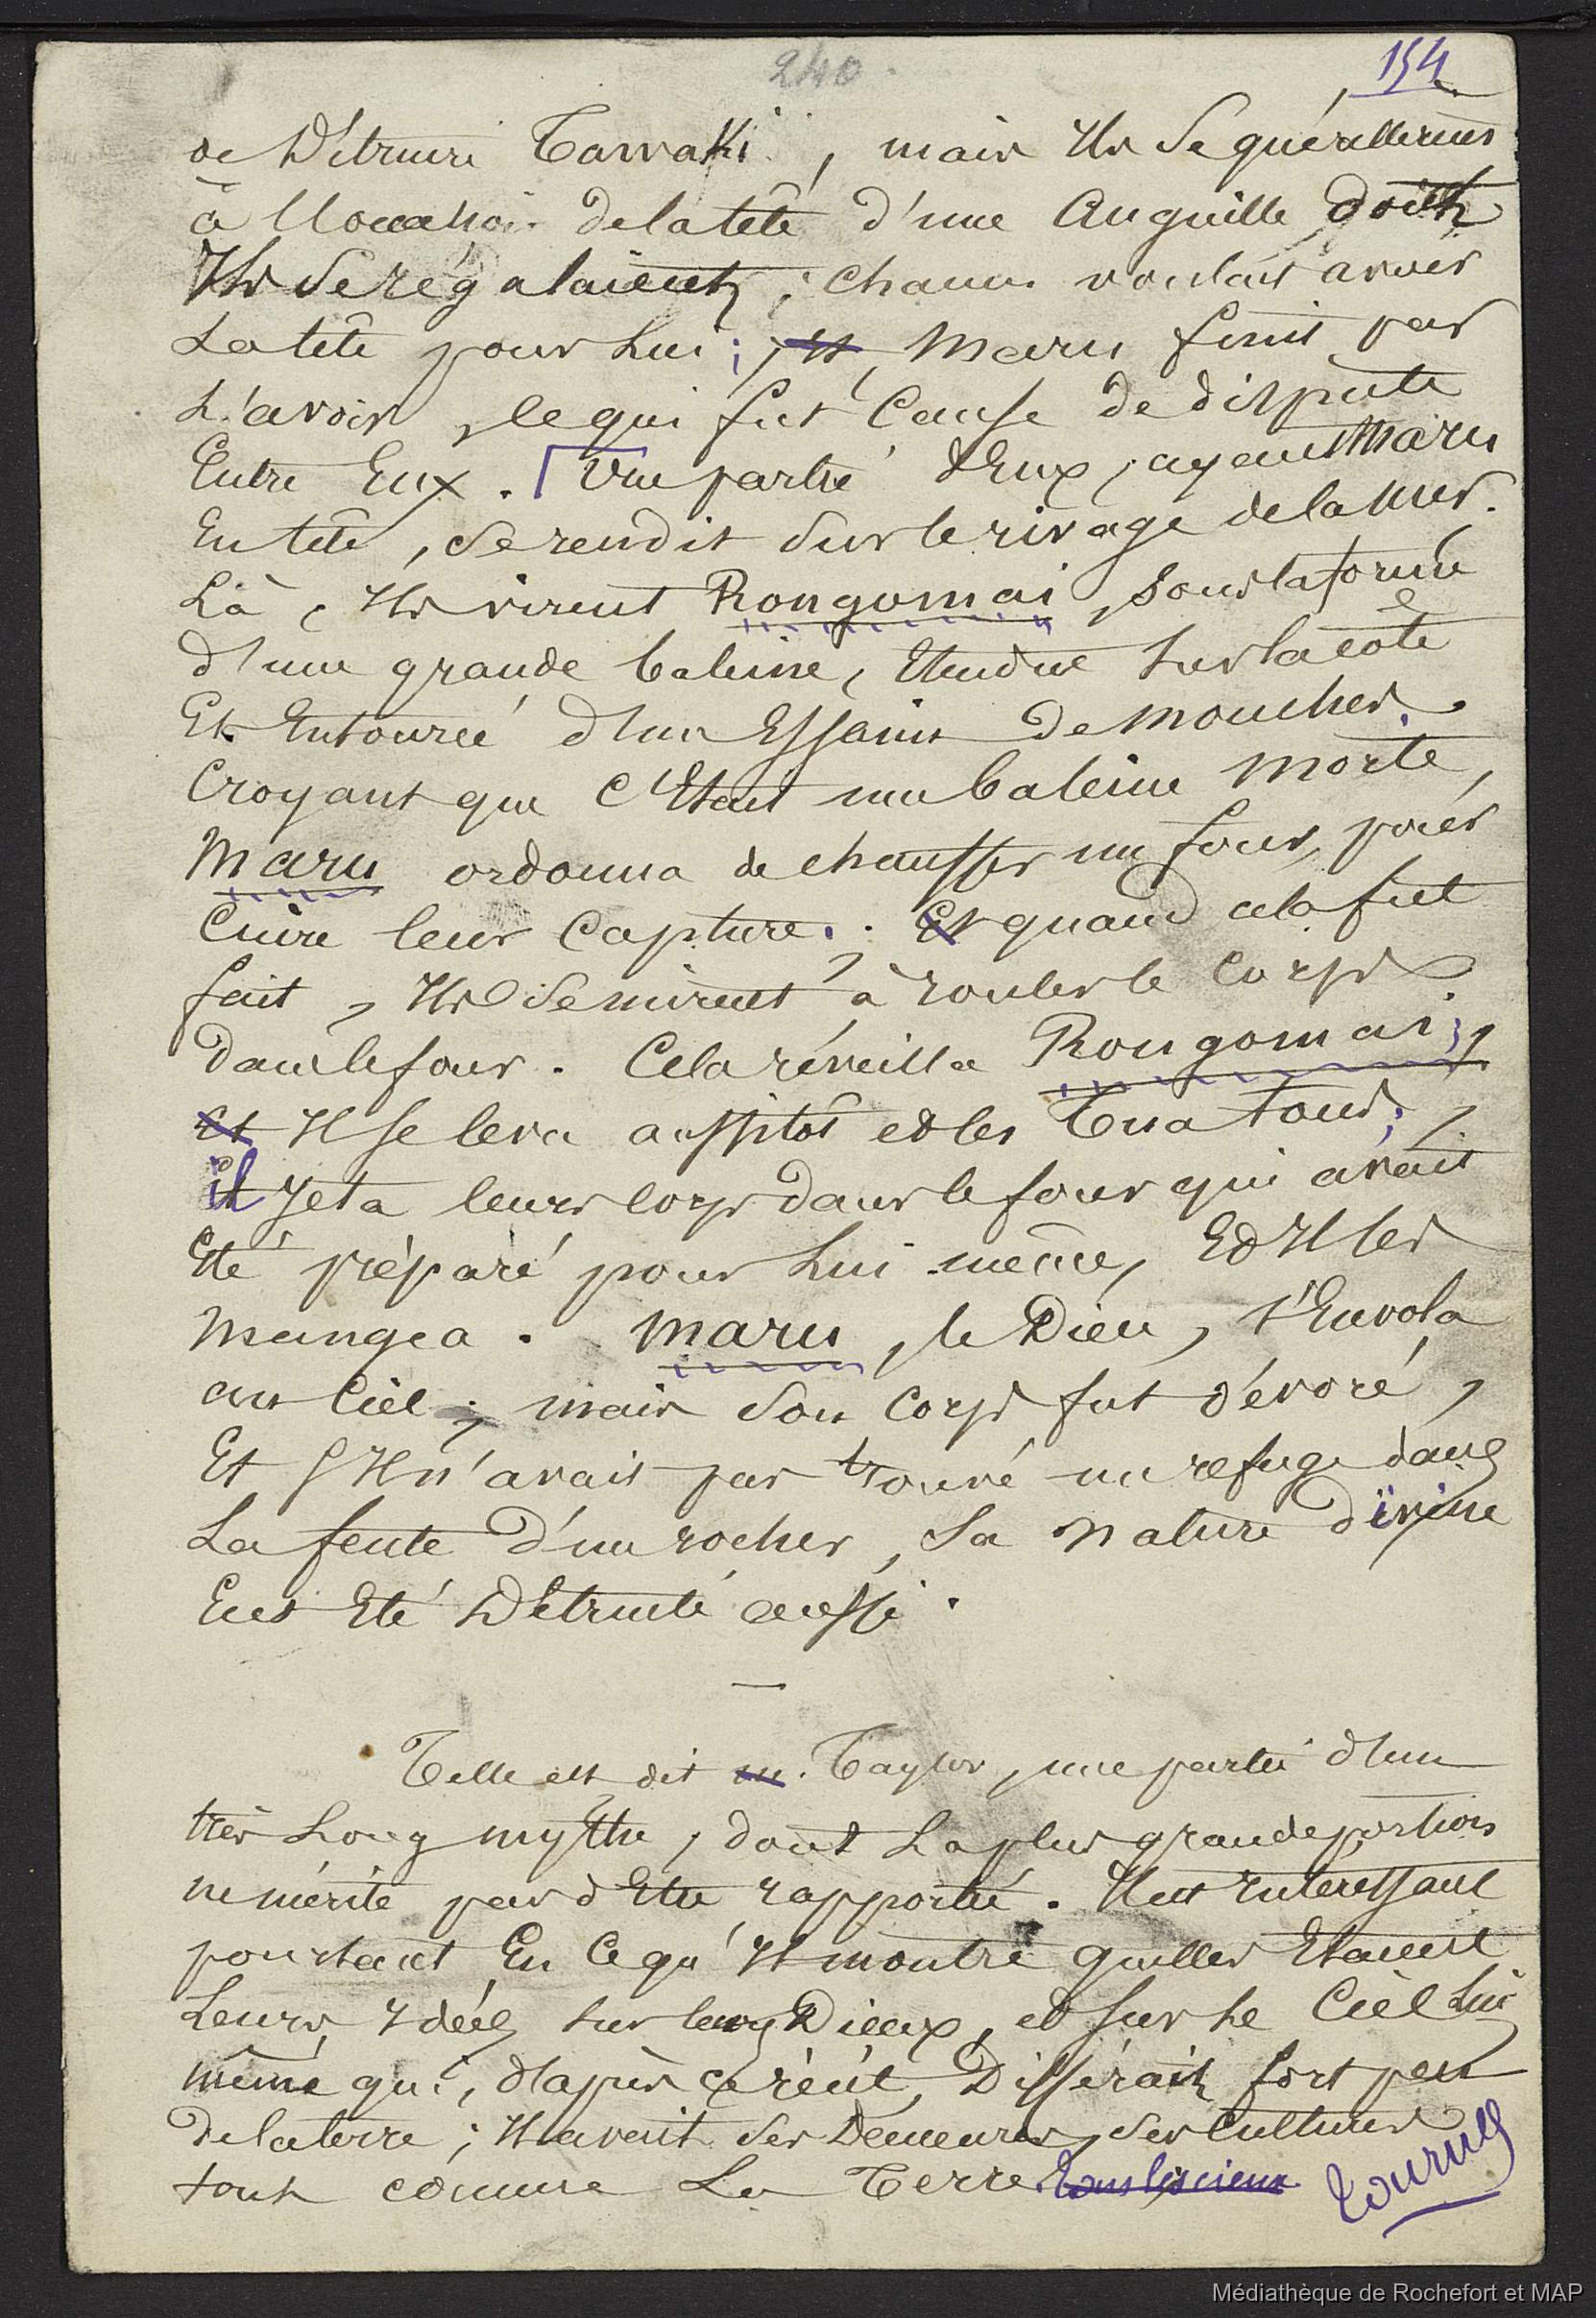 240
154
de Détruire Tawaki, mais Ils se quérellèrent
à l'occasion de la tête d'une Anguille dont
Ils se régalaient ; Chacun voulait avoir
La tête pour Lui ; et Maru finit par
L'avoir, ce qui fut Cause de dispute
Entre Eux. Une partie d'Eux, ayant Maru
En tête, se rendit sur le rivage de la Mer.
Là, Ils virent Rongomai, sous la forme
d'une grande baleine, Etendue sur la côte
Et Entourée d'un Essaim de mouches.
Croyant que C'Etait une baleine morte,
Maru ordonna de chauffer un four, pour
Cuire leur Capture. Et quand cela fut
fait, Ils se mirent à rouler le Corps
dans le four. Cela réveilla Rongomai ;
et Il se leva aussitôt et les Tua tous ;
il Jeta leurs corps dans le four qui avait
Eté préparé pour Lui-même, Et Il les
Mangea. Maru, le Dieu, s'Envola
au Ciel ; mais Son Corps fut dévoré,
Et s'Il n'avait pas trouvé un refuge dans
La fente d'un rocher, Sa Nature divine
Eut Eté Détruite aussi.
—
Telle est dit m. Taylor, une partie d'un
très Long mythe, dont La plus grande portion
ne mérite pas d'Etre rapportée. Il est Intéressant
pourtant En Ce qu'Il montre quelles Etaient
Leurs Idées sur leurs Dieux, et sur Le Ciel Lui
même qui, d'après ce récit, Différait fort peu
de la terre ; Il avait ses Demeures, ses Cultures
tout comme La Terre. Tous les cieux
Tournez
Médiathèque de Rochefort et MAP